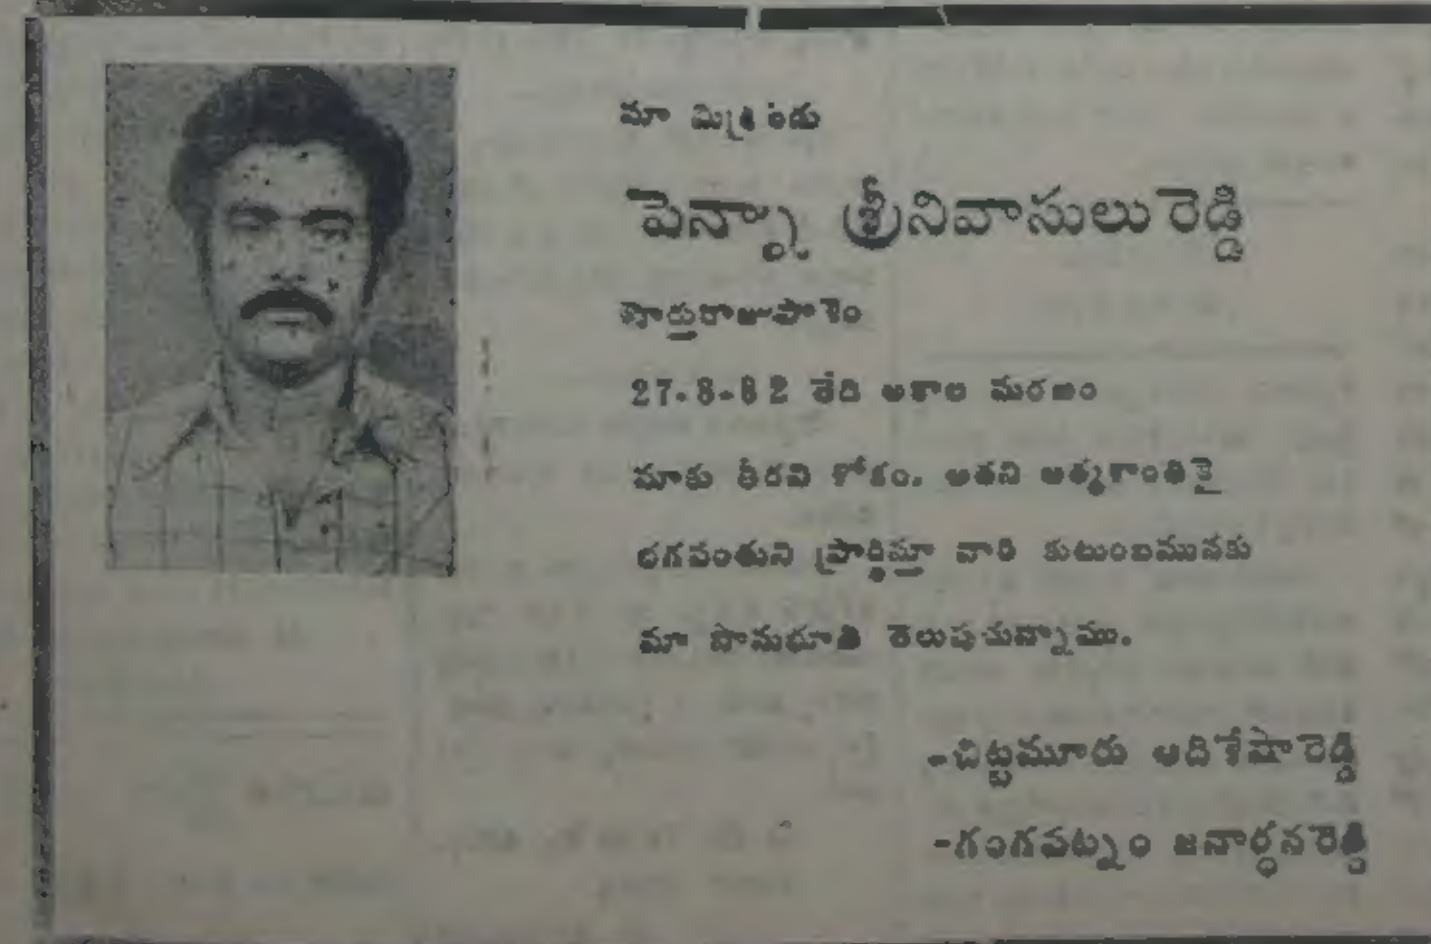 మా మిత్రుడు
పెన్నా శ్రీనివాసులురెడ్డి
పోట్లరాజుపాళెం
27-8-82 తేది అకాల మరణం
మాకు తీరని శోకం. అతని ఆత్మశాంతికై
భగవంతుని ప్రార్థిస్తూ వారి కుటుంబమునకు
మా సానుభూతి తెలుపుచున్నాము.
-చిట్టమూరు ఆదిశేషారెడ్డి
-గంగపట్నం జనార్ధనరెడ్డి